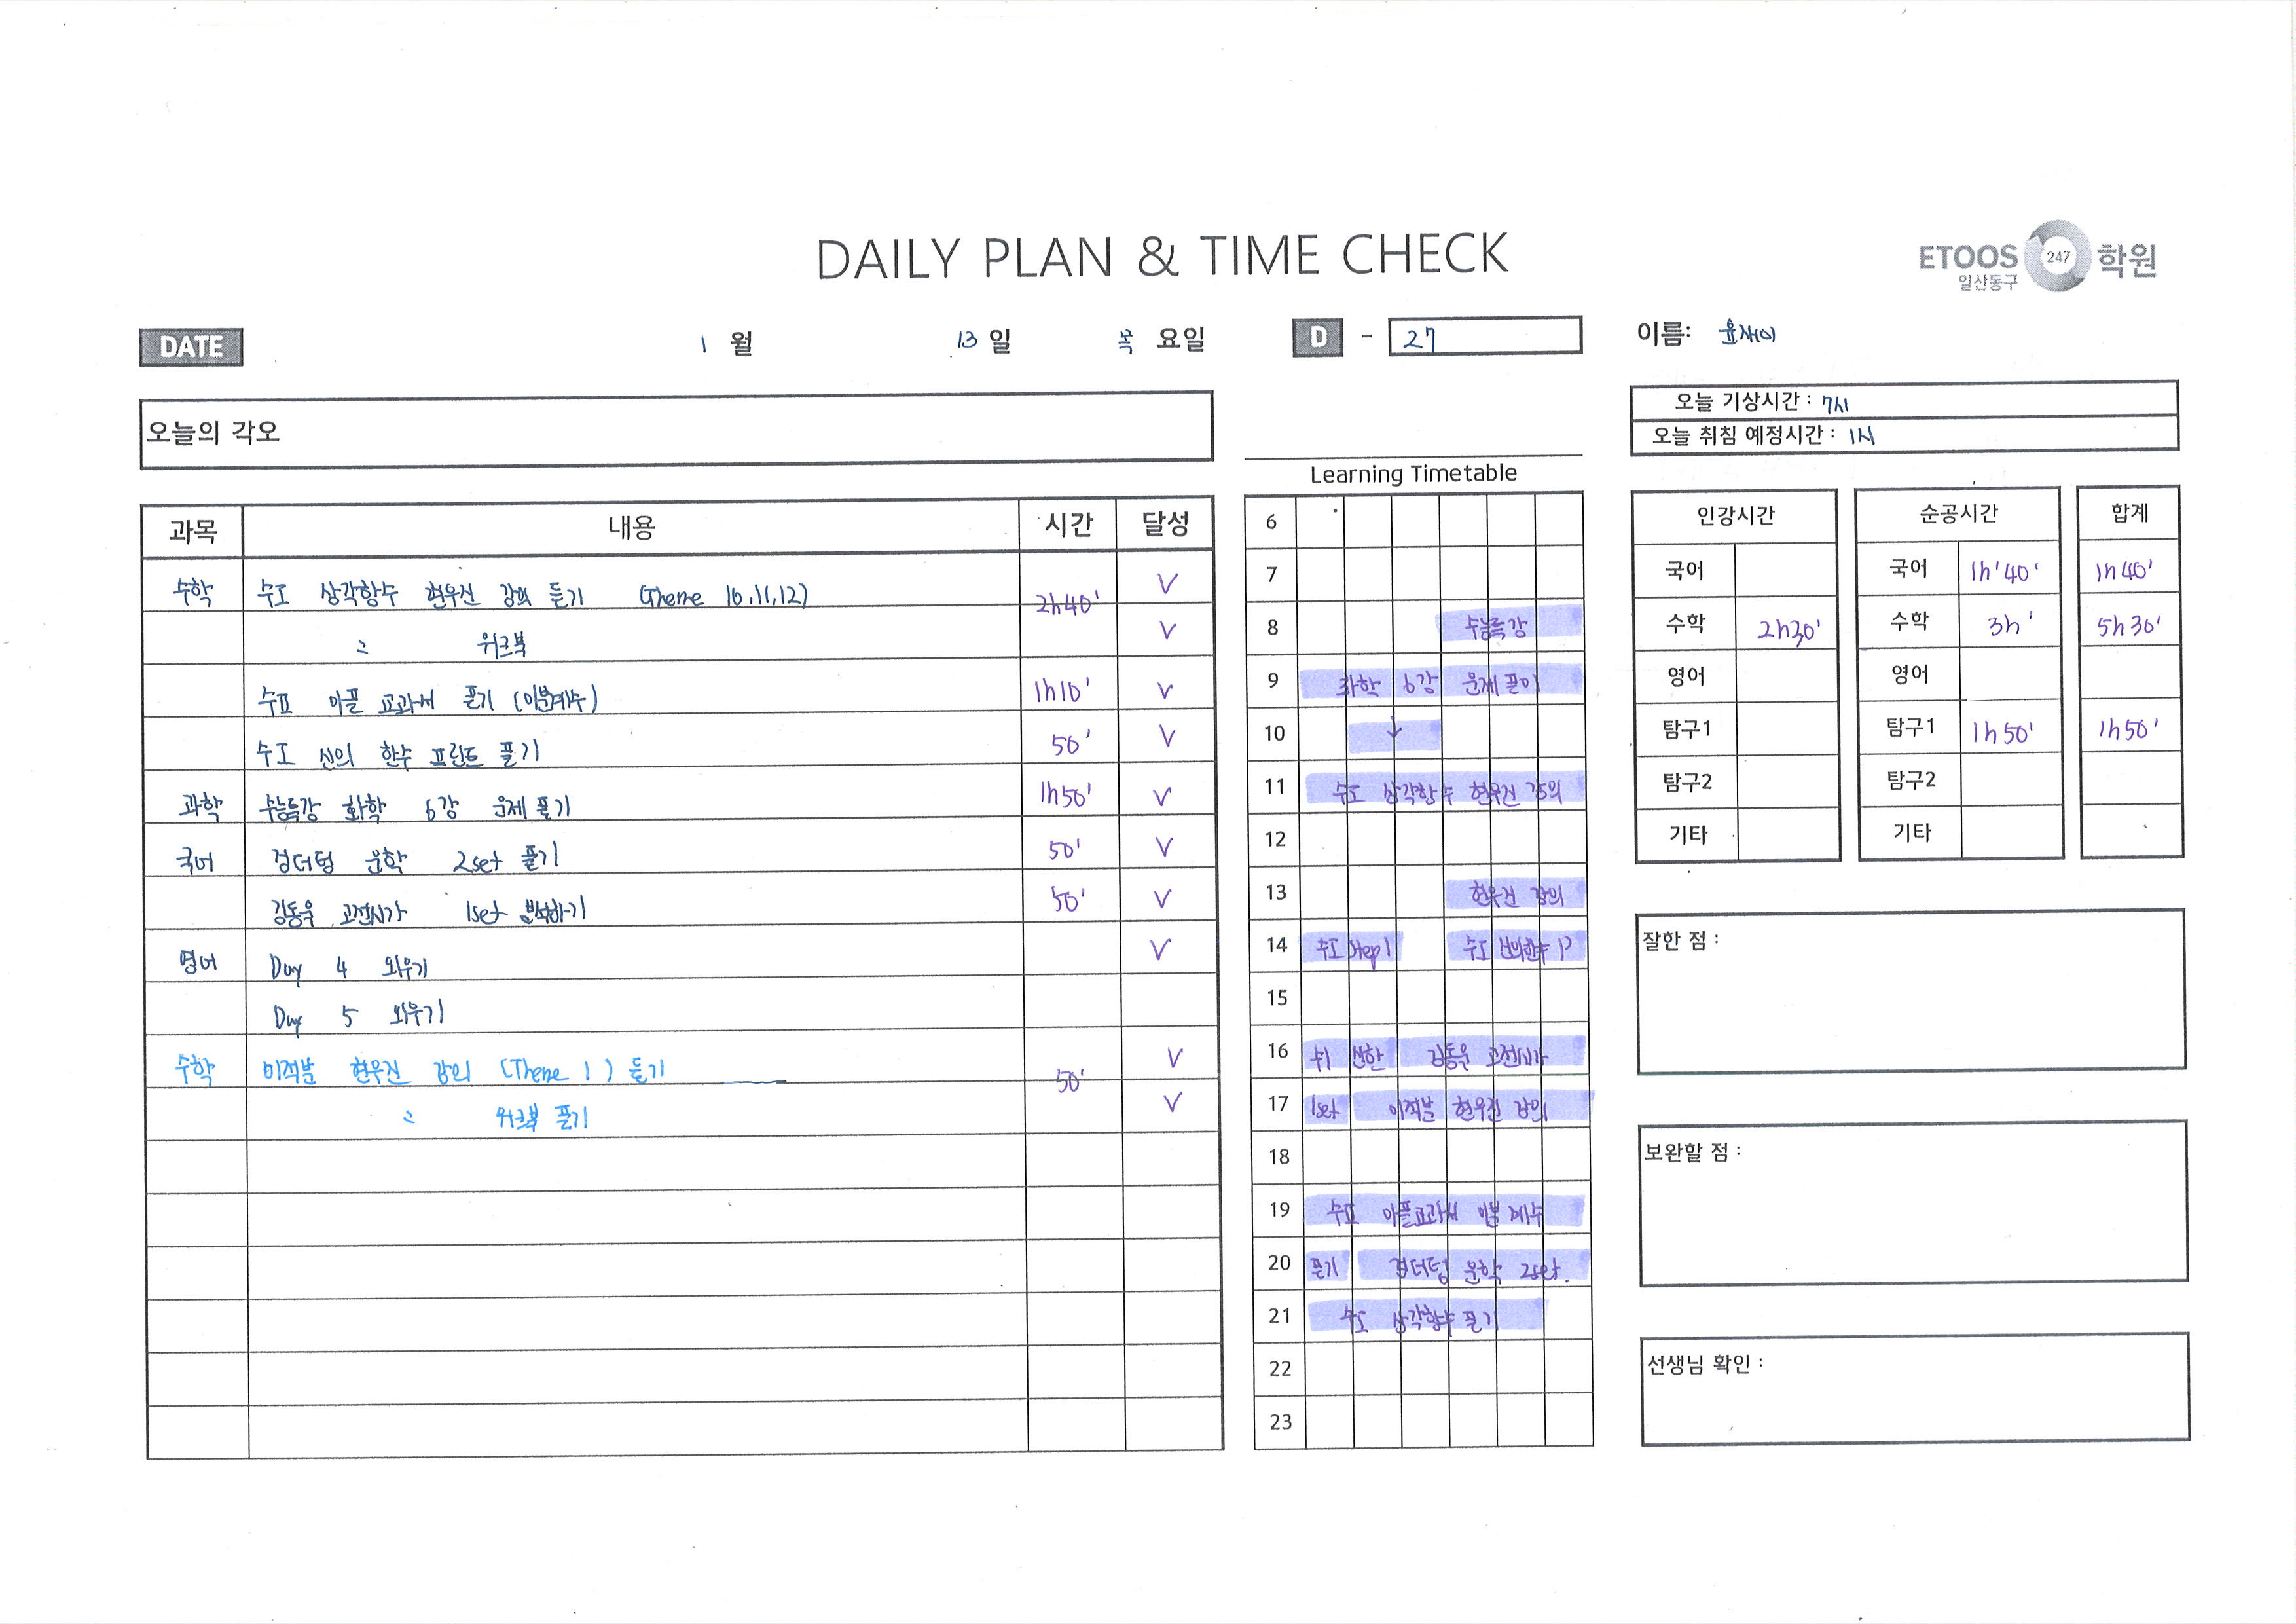 DAILY PLAN & TIME CHECK
ETOOS 247 학원
일산동구
DATE 1 월 13 일 목 요일
D - 27
이름: 윤재이
오늘의 각오
오늘 기상시간 : 7시
오늘 취침 예정시간 : 1시
과목 내용 시간 달성
수학 수I 삼각함수 현우진 강의 듣기 (Theme 10,11,12) 2h40' V
〃 워크북 V
수II 마플 교과서 풀기 (미분계수) 1h10' V
수I 신의 한수 프린트 풀기 50' V
과학 수능특강 화학 6강 문제 풀기 1h50' V
국어 검더텅 문학 2set 풀기 50' V
김동욱 고전시가 1set 분석하기 50' V
영어 Day 4 외우기 V
Day 5 외우기
수학 미적분 현우진 강의 (Theme 1) 듣기 50' V
〃 워크북 풀기 V
Learning Timetable
6
7
8 수능특강
9 화학 6강 문제 풀이
10 ↓
11 수I 삼각함수 현우진 강의
12
13 현우진 강의
14 수I step1 수I 신의한수 P
15
16 김동욱 고전시가
17 1set 미적분 현우진 강의
18
19 수II 마플교과서 미분계수
20 풀기 검더텅 문학 2set.
21 수I 삼각함수 풀기
22
23
인강시간
국어
수학 2h30'
영어
탐구1
탐구2
기타
순공시간
국어 1h'40'
수학 3h'
영어
탐구1 1h50'
탐구2
기타
합계
1h40'
5h30'
1h50'
잘한 점 :
보완할 점 :
선생님 확인 :